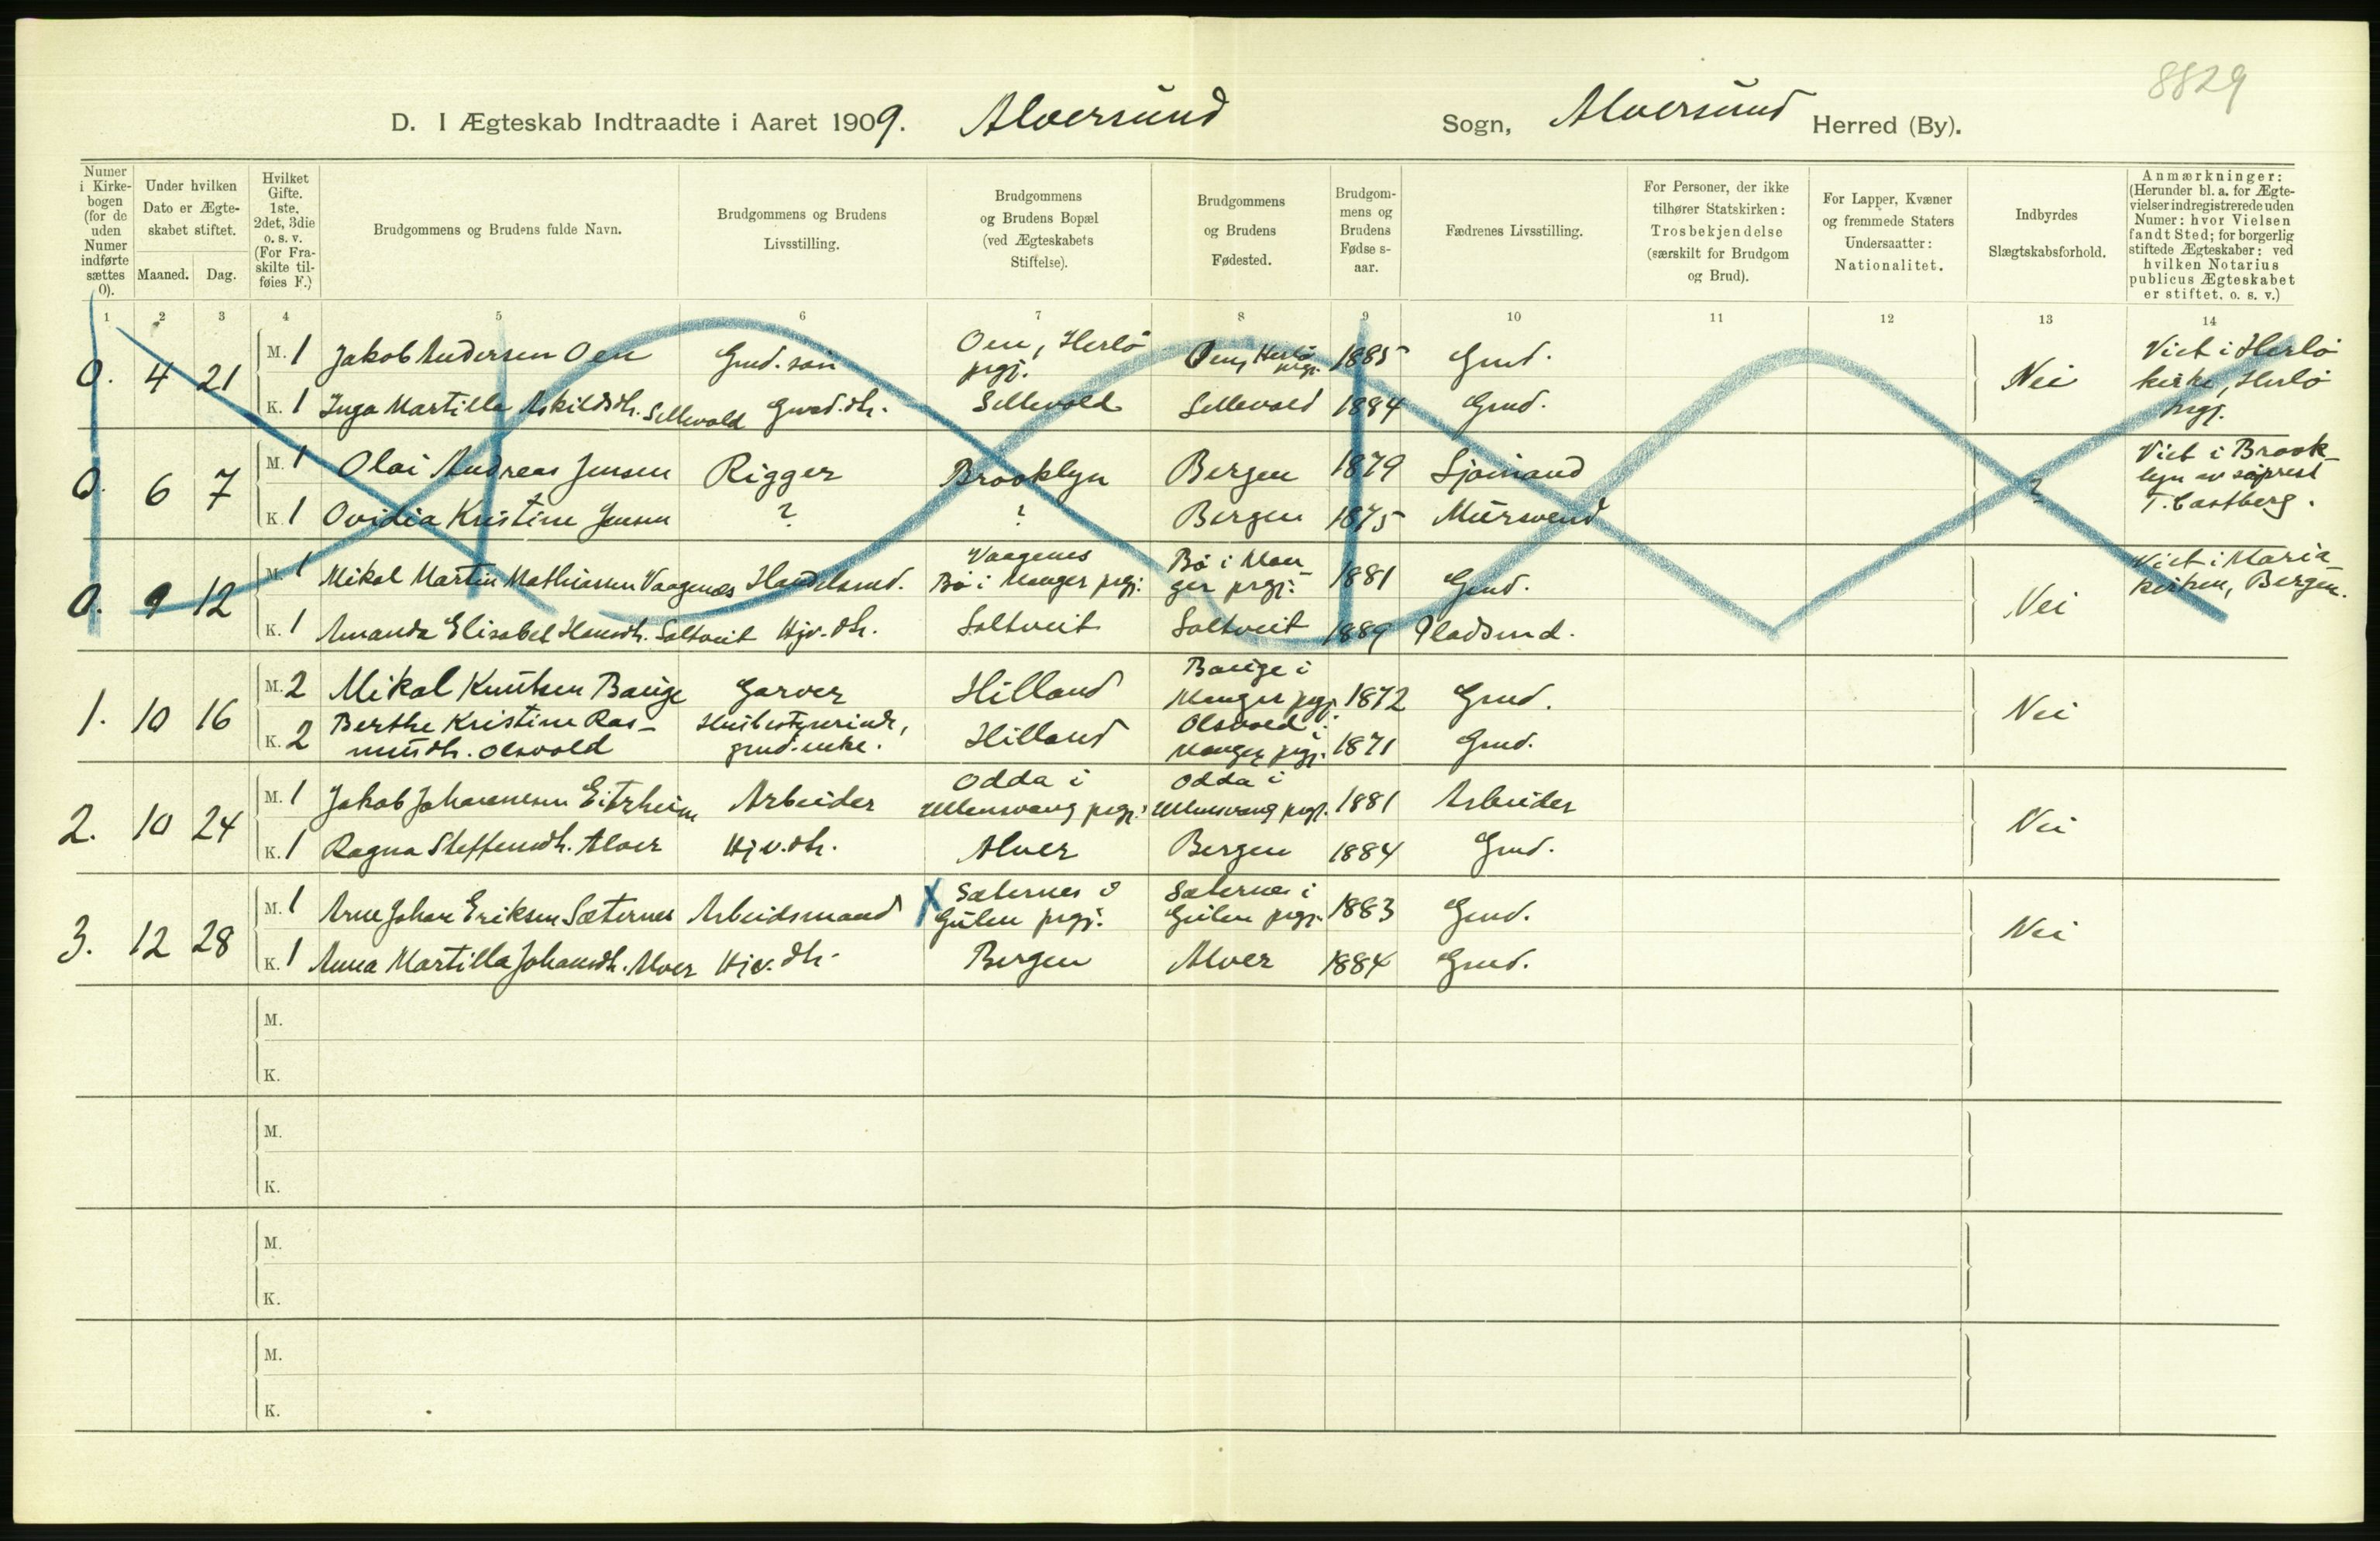 8829
D. I Ægteskab Indtraadte i Aaret 1909. Alversund Sogn, Alversund Herred (By).
Numer i Kirke-bogen (for de uden Numer indførte sættes 0).
Under hvilken Dato er Ægte-skabet stiftet.
Maaned. Dag.
Hvilket Gifte. 1ste, 2det, 3die o. s. v. (For Fra-skilte til-føies F.)
Brudgommens og Brudens fulde Navn.
Brudgommens og Brudens Livsstilling.
Brudgommens og Brudens Bopæl (ved Ægteskabets Stiftelse).
Brudgommens og Brudens Fødested.
Brudgom-mens og Brudens Fødse s-aar.
Fædrenes Livsstilling.
For Personer, der ikke tilhører Statskirken: Trosbekjendelse (særskilt for Brudgom og Brud).
For Lapper, Kvæner og fremmede Staters Undersaatter: Nationalitet.
Indbyrdes Slægtskabsforhold.
Anmærkninger: (Herunder bl. a. for Ægte-vielser indregistrerede uden Numer: hvor Vielsen fandt Sted; for borgerlig stiftede Ægteskaber: ved hvilken Notarius publicus Ægteskabet er stiftet, o. s. v.)
1 2 3 4 5 6 7 8 9 10 11 12 13 14
0. 4 21 M. 1 Jakob Andersen Oen Gmd. søn Oen, Herlø prgj. Oen, Herlø prgj. 1885 Gmd. Nei Viet i Herlø kirke, Herlø prgj.
K. 1 Inga Martille Askildsdtr. Sellevold Gmd.dtr. Sellevold Sellevold 1884 Gmd.
0. 6 7 M. 1 Olai Andreas Jensen Rigger Brooklyn Bergen 1879 Sjømand ? Viet i Brook-lyn av søprest T. Castberg.
K. 1 Ovidia Kristine Jensen ? ? Bergen 1875 Mursvend
0. 9 12 M. 1 Mikal Martin Mathiassen Vaagenes Handelsmd. Vaagenes Bø i Manger prgj. Bø i Man-ger prgj. 1881 Gmd. Nei Viet i Maria-kirken, Bergen.
K. 1 Amanda Elisabet Hansdtr. Soltveit Hjv. dtr. Soltveit Soltveit 1889 Pladsmd.
1. 10 16 M. 2 Mikal Knutsen Bauge Garver Hilland Bauge i Manger prgj. 1872 Gmd. Nei
K. 2 Berthe Kristine Ras-musdtr. Olsvold Husbestyrerinde, gmd.enke. Hilland Olsvold i Manger prgj. 1871 Gmd.
2. 10 24 M. 1 Jakob Johannesen Eitrheim Arbeider Odda i Ullensvang prgj. Odda i Ullensvang prgj. 1881 Arbeider Nei
K. 1 Ragna Steffensdtr. Alver Hjv.dtr. Alver Bergen 1884 Gmd.
3. 12 28 M. 1 Arne Johan Eriksen Sæternes Arbeidsmand X Sæternes i Gulen prgj. Sæternes i Gulen prgj. 1883 Gmd. Nei
K. 1 Anna Martilla Johansdtr. Alver Hjv. dtr. Bergen Alver 1884 Gmd.
M.
K.
M.
K.
M.
K.
M.
K.